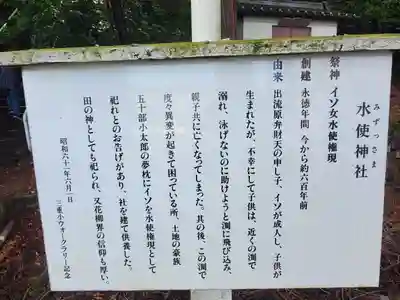 みずっさま
水使神社
祭神 イソ女水使権現
創建 永徳年間 今から約六百年前
由来 出流原弁財天の申し子、イソが成人し、子供が
生まれたが、不幸にして子供は、近くの渕で
溺れ、泳げないのに助けようと渕に飛び込み、
親子共に亡くなってしまった。其の後、この渕で
度々異変が起きて困っている所、土地の豪族
五十部小太郎の夢枕にイソを水使権現として
祀れとのお告げがあり、社を建て供養した。
田の神としても祀られ、又花柳界の信仰も厚い。
昭和六十一年六月一日
三重小ウォークラリー記念